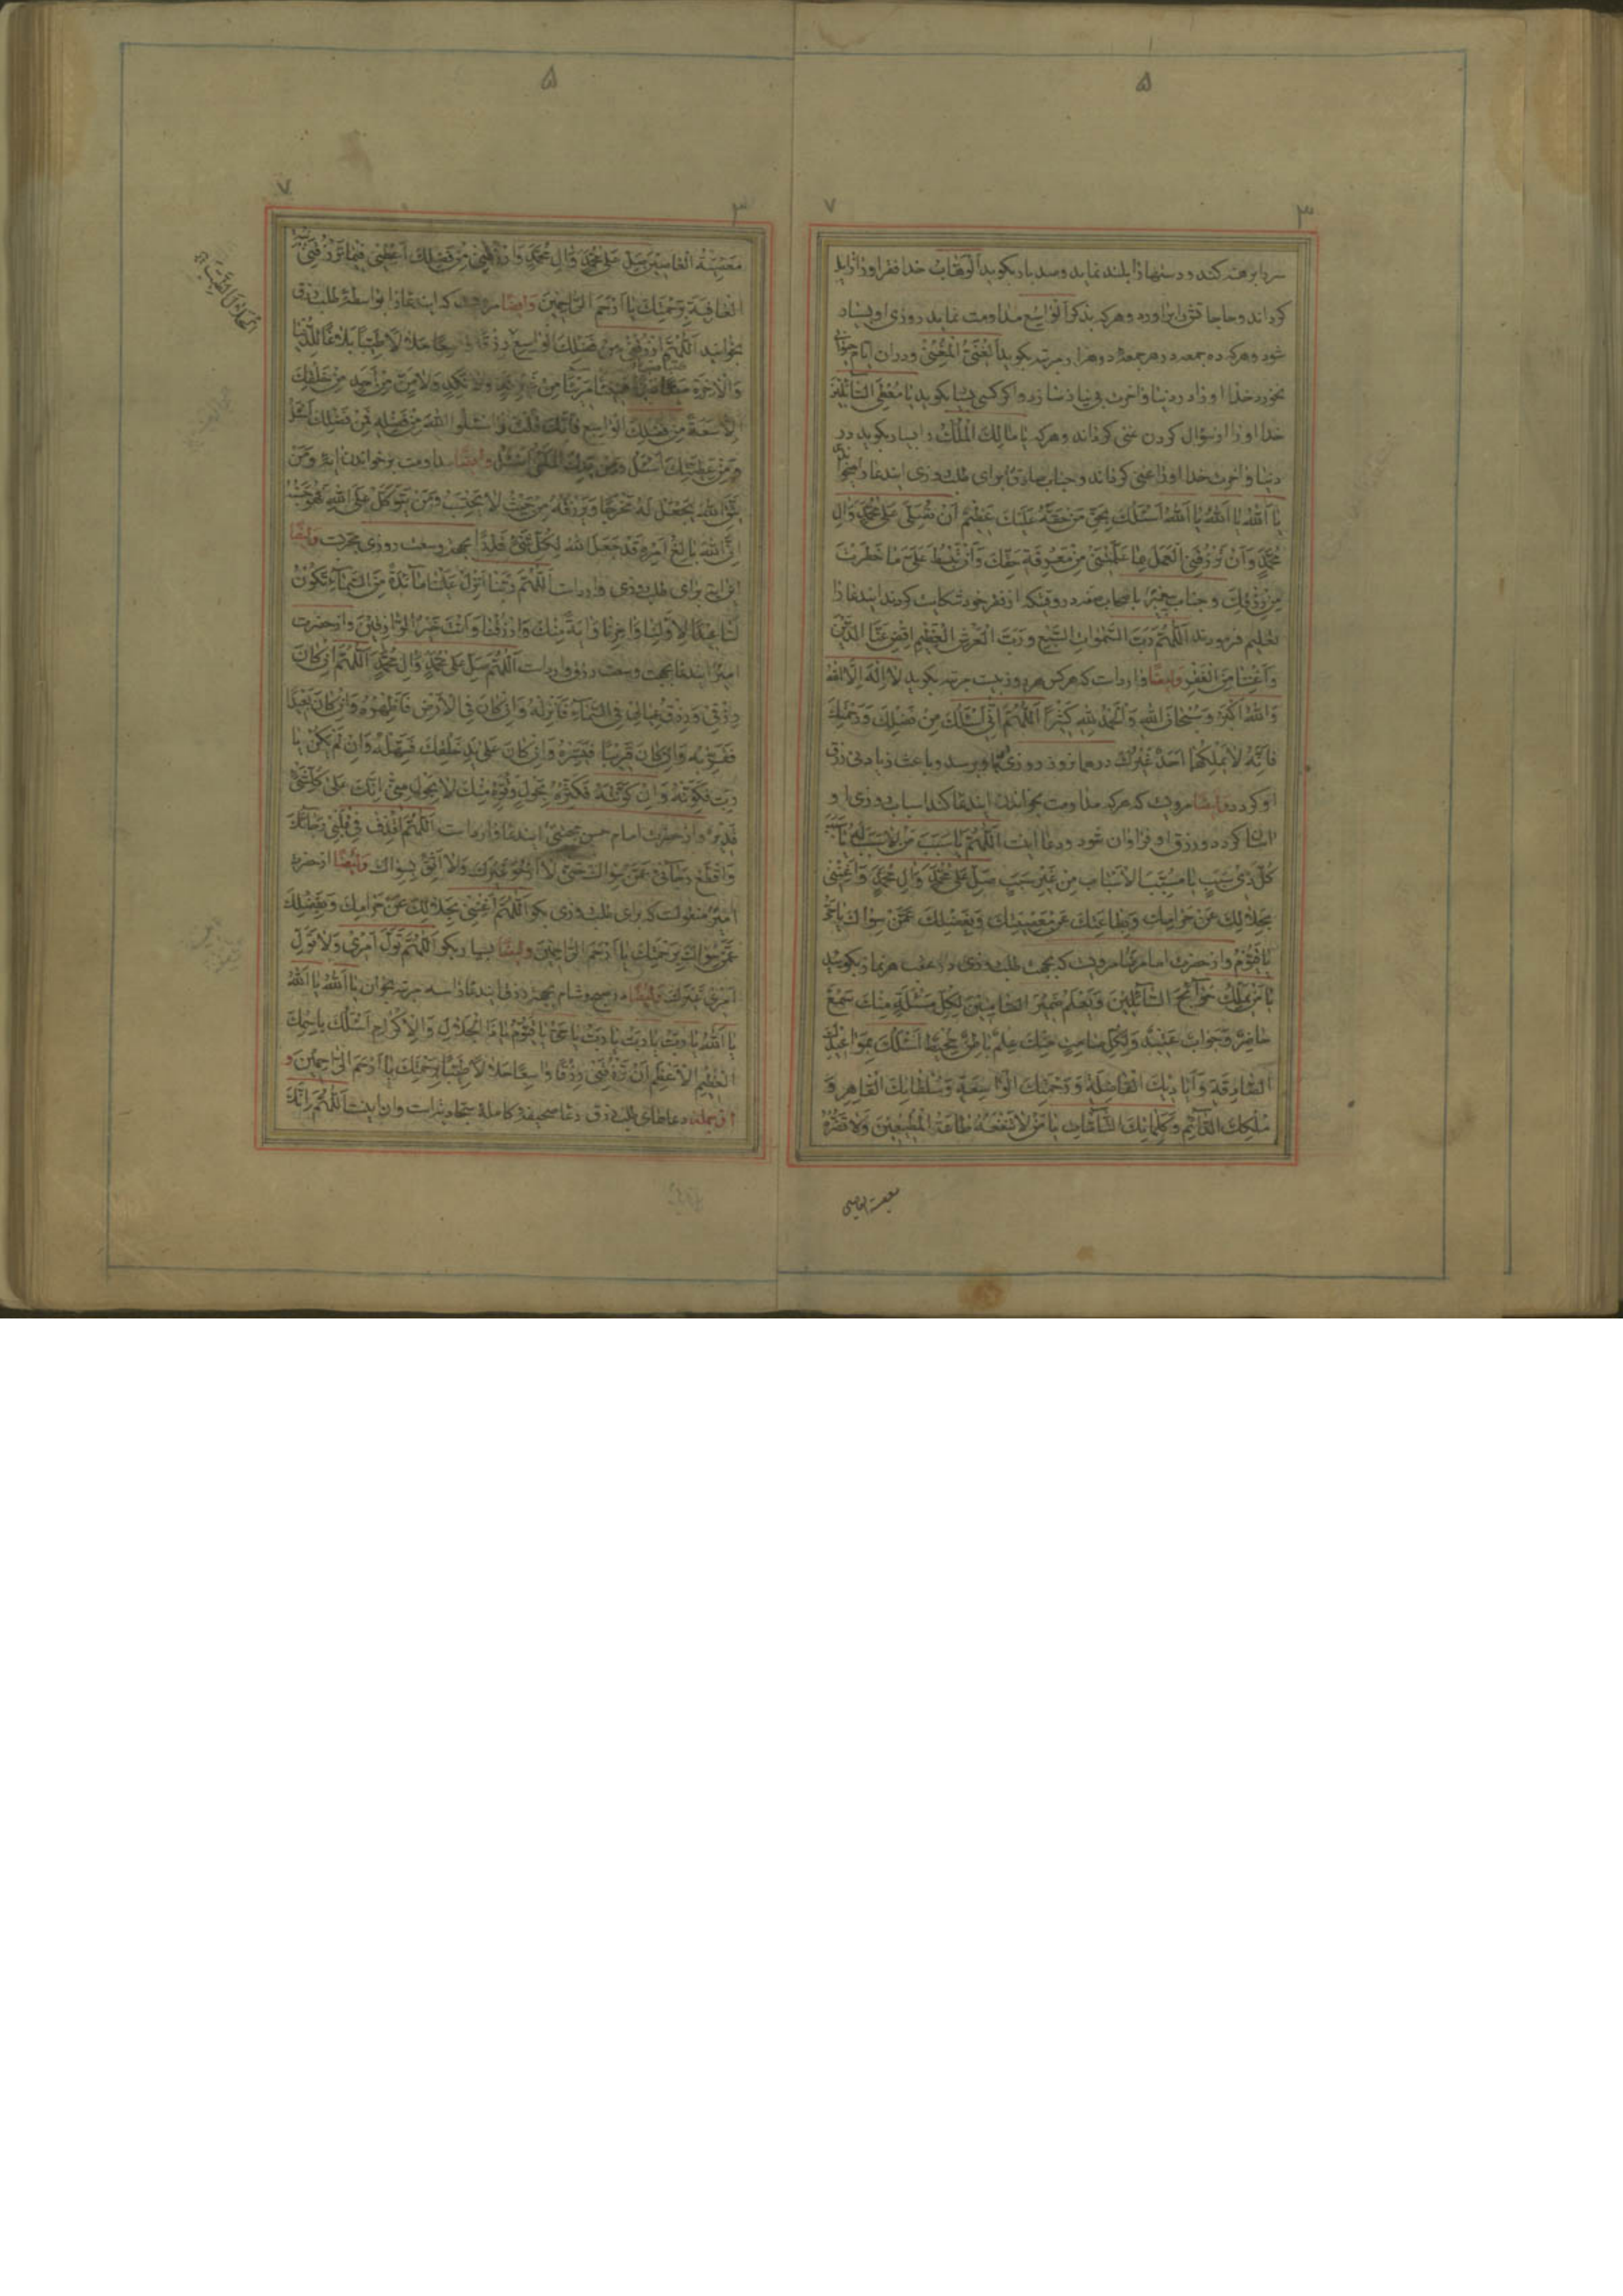 ۵
۳
۷
سر را برهنه کند و دستها را بلند نماید و صد بار بکوید الوهاب خدا فقر او را زایل
کرداند و حاجاتش را براورد و هر که بذکر الواسع مداومت نماید روزی او بسیار
شود و هر که ده جمعه در هر جمعه ده هزار مرتبه بکوید الغنی المغنی و در ان ایام حیوانی
نخورد خدا او را در دنیا و اخرت بی نیاز سازد و اکر کسی بسیار بکوید یا معطی السائلین
خدا او را از سؤال کردن غنی کرداند و هر که یا مالک الملک را بسیار بکوید در
دنیا و اخرت خدا او را غنی کرداند و جناب صادق برای طلب روزی ایندعا را میخواندی
یا اَللّٰهُ یا اَللّٰهُ یا اَللّٰهُ اَسْئَلُكَ بِحَقِّ مَنْ حَقُّهُ عَلَيْكَ عَظِيمٌ اَنْ تُصَلِّيَ عَلىٰ مُحَمَّدٍ وَاٰلِ
مُحَمَّدٍ وَاَنْ تَرْزُقَنِي الْعَمَلَ بِمَا عَلَّمْتَنِي مِنْ مَعْرِفَةِ حَقِّكَ وَاَنْ تَبْسُطَ عَلَيَّ مَا حَظَرْتَ
مِنْ رِزْقِكَ و جناب پیغمبر باصحاب صفه در وقتیکه از فقر خود شکایت کردند ایندعا را
تعلیم فرمودند اَللّٰهُمَّ رَبَّ السَّمٰوَاتِ السَّبْعِ وَرَبَّ الْعَرْشِ الْعَظِيمِ اقْضِ عَنَّا الدَّيْنَ
وَاَغْنِنَا مِنَ الْفَقْرِ وایضا وارد است که هر کس هر روز بیست مرتبه بکوید لا اِلٰهَ اِلَّا اللّٰهُ
وَاللّٰهُ اَكْبَرُ وَسُبْحَانَ اللّٰهِ وَالْحَمْدُ لِلّٰهِ كَثِيرًا اَللّٰهُمَّ اِنِّي اَسْئَلُكَ مِنْ فَضْلِكَ وَرَحْمَتِكَ
فَاِنَّهُ لَا يَمْلِكُهُمَا اَحَدٌ غَيْرُكَ در همانروز روزی باو برسد و باعث زیادتی رزق
او کردد وایضا مرویست که هر که مداومت بخواندن ایندعا کند اسباب روزی او
اسان کردد و رزق او فراوان شود و دعا اینست اَللّٰهُمَّ يَا سَبَبَ مَنْ لَا سَبَبَ لَهُ يَا سَبَبَ
كُلِّ ذِي سَبَبٍ يَا مُسَبِّبَ الْاَسْبَابِ مِنْ غَيْرِ سَبَبٍ صَلِّ عَلىٰ مُحَمَّدٍ وَاٰلِ مُحَمَّدٍ وَاَغْنِنِي
بِحَلَالِكَ عَنْ حَرَامِكَ وَبِطَاعَتِكَ عَنْ مَعْصِيَتِكَ وَبِفَضْلِكَ عَمَّنْ سِوَاكَ يَا حَيُّ
يَا قَيُّومُ و از حضرت امام رضا مرویست که بجهت طلب روزی در عقب هر نماز بکویید
يَا مَنْ يَمْلِكُ حَوَائِجَ السَّائِلِينَ وَيَعْلَمُ ضَمِيرَ الصَّامِتِينَ لِكُلِّ مَسْئَلَةٍ مِنْكَ سَمْعٌ
حَاضِرٌ وَجَوَابٌ عَتِيدٌ وَلِكُلِّ صَامِتٍ مِنْكَ عِلْمٌ بَاطِنٌ مُحِيطٌ اَسْئَلُكَ بِمَوَاعِيدِكَ
الصَّادِقَةِ وَاَيَادِيكَ الْفَاضِلَةِ وَرَحْمَتِكَ الْوَاسِعَةِ وَسُلْطَانِكَ الْقَاهِرِ وَ
مُلْكِكَ الدَّائِمِ وَكَلِمَاتِكَ التَّامَّاتِ يَا مَنْ لَا تَنْفَعُهُ طَاعَةُ الْمُطِيعِينَ وَلَا تَضُرُّهُ
معصیة العاصین
۵
۳
۷
مَعْصِيَةُ الْعَاصِينَ صَلِّ عَلىٰ مُحَمَّدٍ وَاٰلِ مُحَمَّدٍ وَارْزُقْنِي مِنْ فَضْلِكَ وَاَعْطِنِي فِيمَا تَرْزُقُنِي
الْعَافِيَةَ بِرَحْمَتِكَ يَا اَرْحَمَ الرَّاحِمِينَ وایضا مرویست که ایندعا را بواسطه طلب رزق
بخوانید اَللّٰهُمَّ ارْزُقْنِي مِنْ فَضْلِكَ الْوَاسِعِ رِزْقًا وَاسِعًا حَلَالًا طَيِّبًا بَلَاغًا لِلدُّنْيَا
وَالْاٰخِرَةِ مَرِيئًا مِنْ غَيْرِ كَدٍّ وَلَا نَكَدٍ وَلَا مِنْ مِنْ اَحَدٍ مِنْ خَلْقِكَ
اِلَّا سَعَةً مِنْ فَضْلِكَ الْوَاسِعِ فَاِنَّكَ قُلْتَ وَاسْئَلُوا اللّٰهَ مِنْ فَضْلِهِ فَمِنْ فَضْلِكَ اَسْئَلُ
وَمِنْ عَطِيَّتِكَ اَسْئَلُ وَمِنْ يَدِكَ الْمَلْأىٰ اَسْئَلُ وایضا مداومت بر خواندن ایه وَمَنْ
يَتَّقِ اللّٰهَ يَجْعَلْ لَهُ مَخْرَجًا وَيَرْزُقْهُ مِنْ حَيْثُ لَا يَحْتَسِبُ وَمَنْ يَتَوَكَّلْ عَلَى اللّٰهِ فَهُوَ حَسْبُهُ
اِنَّ اللّٰهَ بَالِغُ اَمْرِهِ قَدْ جَعَلَ اللّٰهُ لِكُلِّ شَيْءٍ قَدْرًا بجهت وسعت روزی مجربست وایضا
این ایه برای طلب روزی وارد است اَللّٰهُمَّ رَبَّنَا اَنْزِلْ عَلَيْنَا مَائِدَةً مِنَ السَّمَاءِ تَكُونُ
لَنَا عِيدًا لِاَوَّلِنَا وَاٰخِرِنَا وَاٰيَةً مِنْكَ وَارْزُقْنَا وَاَنْتَ خَيْرُ الرَّازِقِينَ و از حضرت
امیر ایندعا بجهت وسعت رزق وارد است اَللّٰهُمَّ صَلِّ عَلىٰ مُحَمَّدٍ وَاٰلِ مُحَمَّدٍ اَللّٰهُمَّ اِنْ كَانَ
رِزْقِي وَرِزْقُ عِيَالِي فِي السَّمَاءِ فَاَنْزِلْهُ وَاِنْ كَانَ فِي الْاَرْضِ فَاَظْهِرْهُ وَاِنْ كَانَ بَعِيدًا
فَقَرِّبْهُ وَاِنْ كَانَ قَرِيبًا فَيَسِّرْهُ وَاِنْ كَانَ عَلىٰ يَدِ خَلْقِكَ فَسَهِّلْهُ وَاِنْ لَمْ يَكُنْ يَا
رَبِّ فَكَوِّنْهُ وَاِنْ كَوَّنْتَهُ فَكَثِّرْهُ بِحَوْلٍ وَقُوَّةٍ مِنْكَ لَا بِحَوْلٍ مِنِّي اِنَّكَ عَلىٰ كُلِّ شَيْءٍ
قَدِيرٌ و از حضرت امام حسن مجتبی ایندعا وارد است اَللّٰهُمَّ اقْذِفْ فِي قَلْبِي رَجَائَكَ
وَاقْطَعْ رَجَائِي عَمَّنْ سِوَاكَ حَتّٰى لَا اَرْجُوَ غَيْرَكَ وَلَا اَثِقُ بِسِوَاكَ وایضا از حضرت
امیر منقولست که برای طلب روزی بکو اَللّٰهُمَّ اَغْنِنِي بِحَلَالِكَ عَنْ حَرَامِكَ وَبِفَضْلِكَ
عَمَّنْ سِوَاكَ بِرَحْمَتِكَ يَا اَرْحَمَ الرَّاحِمِينَ وایضا بسیار بکو اَللّٰهُمَّ تَوَلَّ اَمْرِي وَلَا تُوَلِّ
اَمْرِي غَيْرَكَ وایضا در صبح و شام بجهت رزق ایندعا را سه مرتبه بخوان يَا اَللّٰهُ يَا اَللّٰهُ
يَا اَللّٰهُ يَا رَبِّ يَا رَبِّ يَا رَبِّ يَا حَيُّ يَا قَيُّومُ يَا ذَا الْجَلَالِ وَالْاِكْرَامِ اَسْئَلُكَ بِاسْمِكَ
الْعَظِيمِ الْاَعْظَمِ اَنْ تَرْزُقَنِي رِزْقًا وَاسِعًا حَلَالًا طَيِّبًا بِرَحْمَتِكَ يَا اَرْحَمَ الرَّاحِمِينَ و
از جمله دعاهای طلب رزق دعا صحیفه کامله سجادیه است وان اینست اَللّٰهُمَّ اِنَّكَ